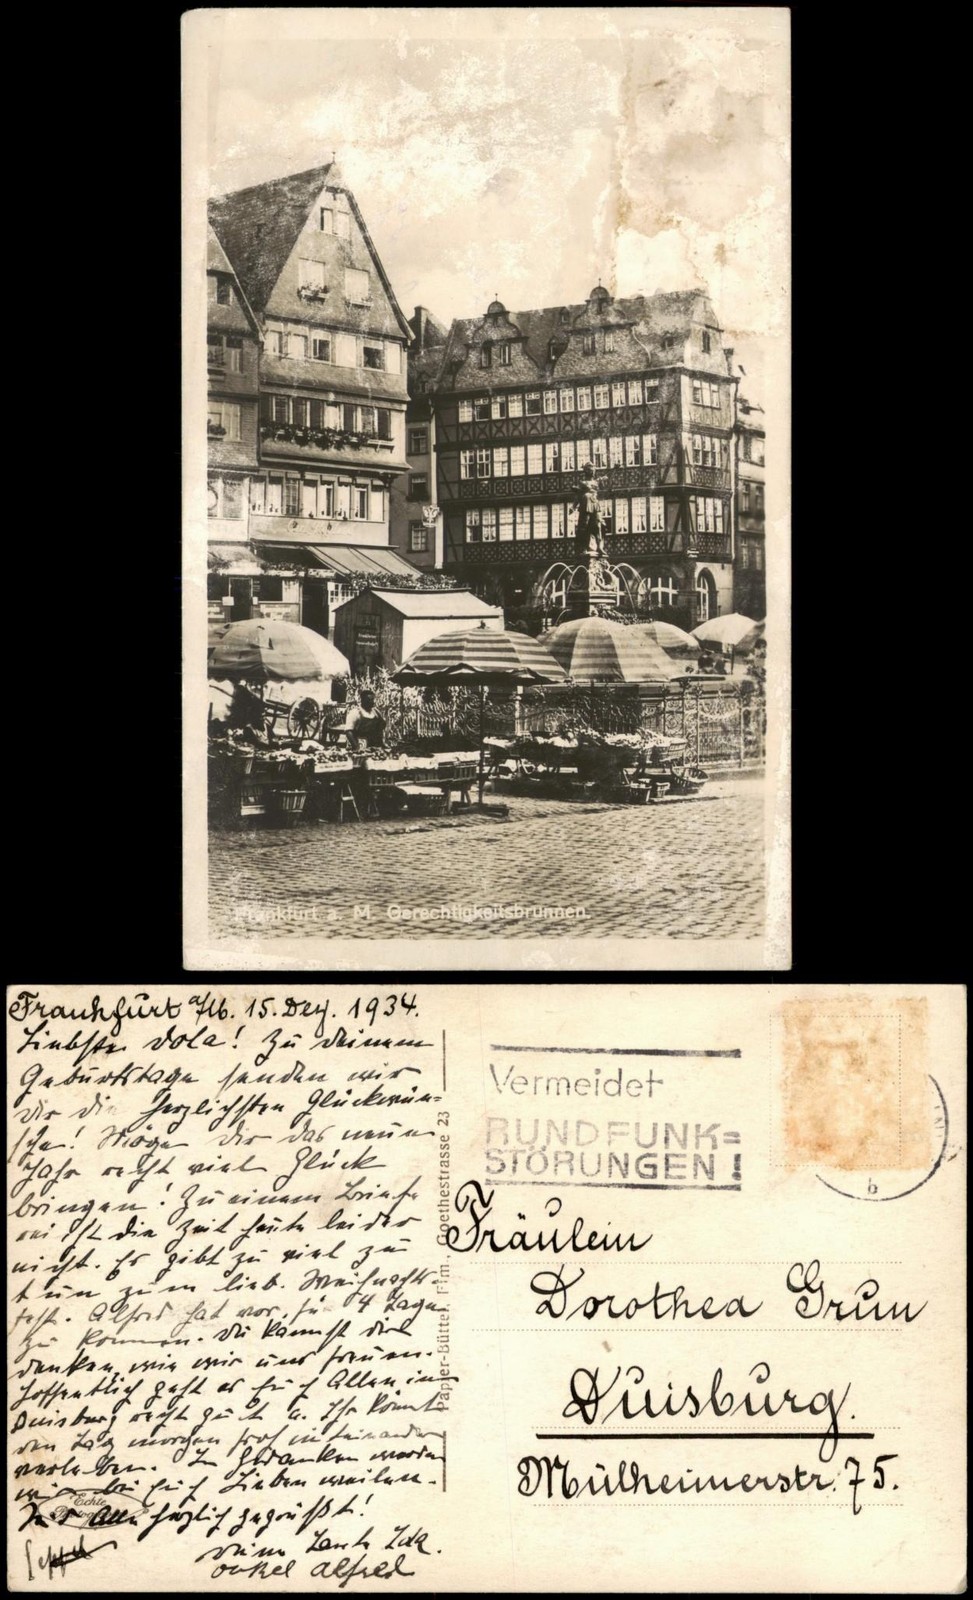 Frankfurt a. M. Gerechtigkeitsbrunnen.
Frankfurt a/M. 15. Dez. 1934.
Liebste Dola! Zu deinem
Geburtstage senden wir
Dir die herzlichsten Glückwün=
sche! Möge Dir das neue
Jahr recht viel Glück
bringen! Zu einem Briefe
ist die Zeit heute leider
nicht. Es gibt zu viel zu
tun zum lieb. Weihnachts-
fest. Alfred hat vor, für 4 Tage
zu kommen. Du kannst dir
denken, wie wir uns freuen.
Hoffentlich geht es Euch Allen in
Duisburg recht gut u. Ihr könnt
den Tag morgen froh miteinander
verleben. In Gedanken werden
wir bei Euch Lieben weilen.
Seid Alle herzlich gegrüßt!
Deine Tante Ida.
Onkel Alfred
Echte
Papier-Büttel Ffm., Goethestrasse 23
Vermeidet
RUNDFUNK=
STÖRUNGEN!
b
Fräulein
Dorothea Grun
Duisburg.
Mülheimerstr. 75.